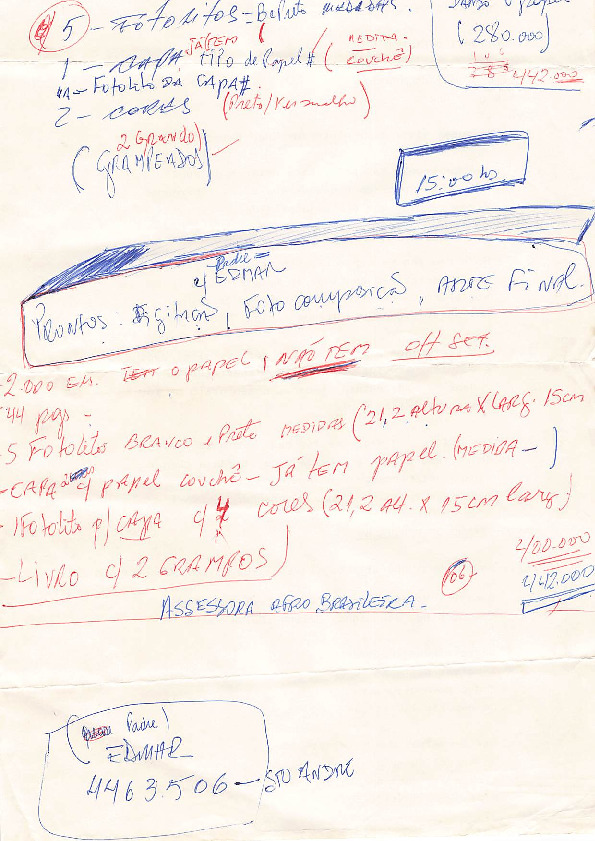 5 - FOTOLITOS = B e Preto MEDIDAS.
(280.000)
442.000
JÁ TEM
1 - CAPA TIPO de Papel # (MEDIDA couchô)
1A - Fotolito DA CAPA #.
2 - CORES (Preto/Vermelho)
2 Grando)
(GRAMPEADOS)
15:00 hs
Padre =
c/ EDMAR
PRONTOS: Digitação, Fotocomposição, ARTE FINAL.
2.000 EX. TEM o papel, NÃO TEM off set.
44 pgs -
5 Fotolitos BRANCO e Preto MEDIDAS (21,2 ALTURA X LARG. 15cm
- CAPA c/ papel couchô - JÁ TEM papel. (MEDIDA - )
- 1 Fotolito p/ CAPA c/ 4 cores (21,2 A4. X 15cm larg)
- LIVRO c/ 2 GRAMPOS
400.000
(06)
442.000
ASSESSORA AFRO BRASILEIRA -
Padre)
EDMAR
4463.506 - STO ANDRE